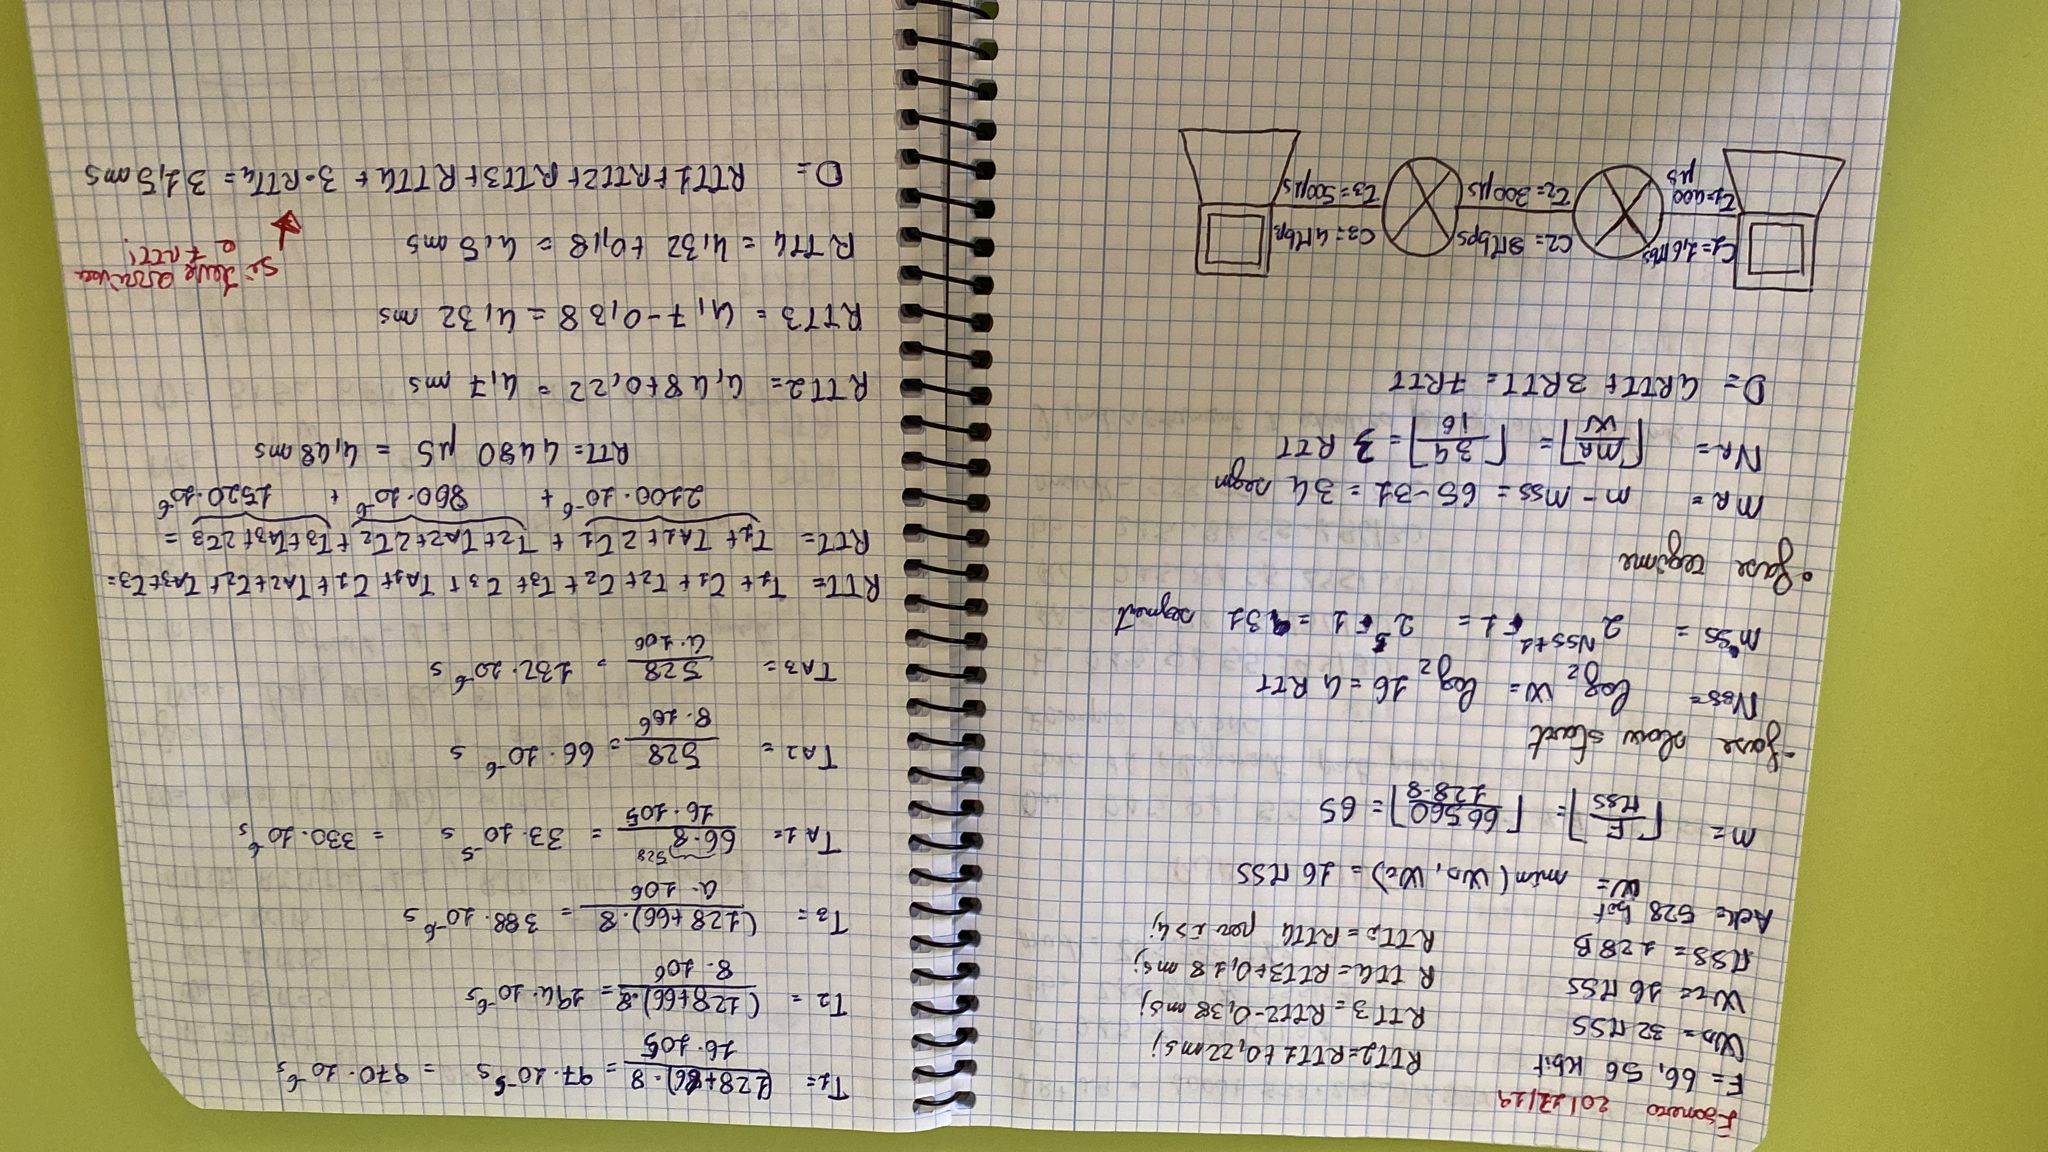 Esonero 20/11/19
F= 66,56 Kbit
WD= 32 MSS
WC= 16 MSS
MSS= 128 B
Ack= 528 bit
RTT2=RTT1+0,22ms;
RTT3=RTT2-0,38 ms;
RTT4=RTT3+0,18 ms;
RTTi=RTT4 per i>4;
W= min(WD, WC)= 16 MSS
m= ⌈F/MSS⌉= ⌈66560/128·8⌉= 65
-fase slow start
NSS= log2 W= log2 16=4 RTT
mSS= 2^NSS+1 -1= 2^5 -1 = 31 segment
• fase regime
mR= m-mSS= 65-31= 34 segm
NR= ⌈mR/W⌉= ⌈34/16⌉= 3 RTT
D= 4RTT+ 3RTT= 7RTT
C1=1,6Mbs C2= 8Mbps C3=4Mbps
τ1=400 μs τ2=300μs τ3=500μs
T1= (128+66)·8/16·10^5 = 97·10^-5 s = 970·10^-6 s
T2= (128+66)·8/8·10^6 = 194·10^-6 s
T3= (128+66)·8/4·10^6 = 388·10^-6 s
TA1= 66·8 528/16·10^5 = 33·10^-5 s = 330·10^-6 s
TA2= 528/8·10^6 = 66·10^-6 s
TA3= 528/4·10^6 = 132·10^-6 s
RTT= T1+ τ1+ T2+ τ2+ T3+ τ3+ TA1+ τ1+TA2+τ2+ TA3+τ3=
RTT= T1+ TA1+2τ1 + T2+TA2+2τ2 +T3+TA3+2τ3 =
2100·10^-6 + 860·10^-6 + 1520·10^-6
RTT= 4480 μS = 4,48 ms
RTT2= 4,48+0,22 = 4,7 ms
RTT3= 4,7-0,38= 4,32 ms
RTT4= 4,32 +0,18= 4,5 ms
si deve arrivare
a 7 RTT!
D= RTT1+RTT2+RTT3+RTT4+ 3·RTT4= 31,5 ms